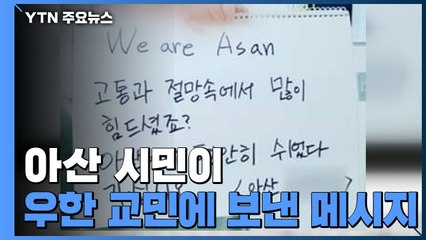 YTN 주요뉴스
We are Asan
고통과 절망속에서 많이
힘드셨죠?
쉬었다
(아산
아산 시민이
우한 교민에 보낸 메시지